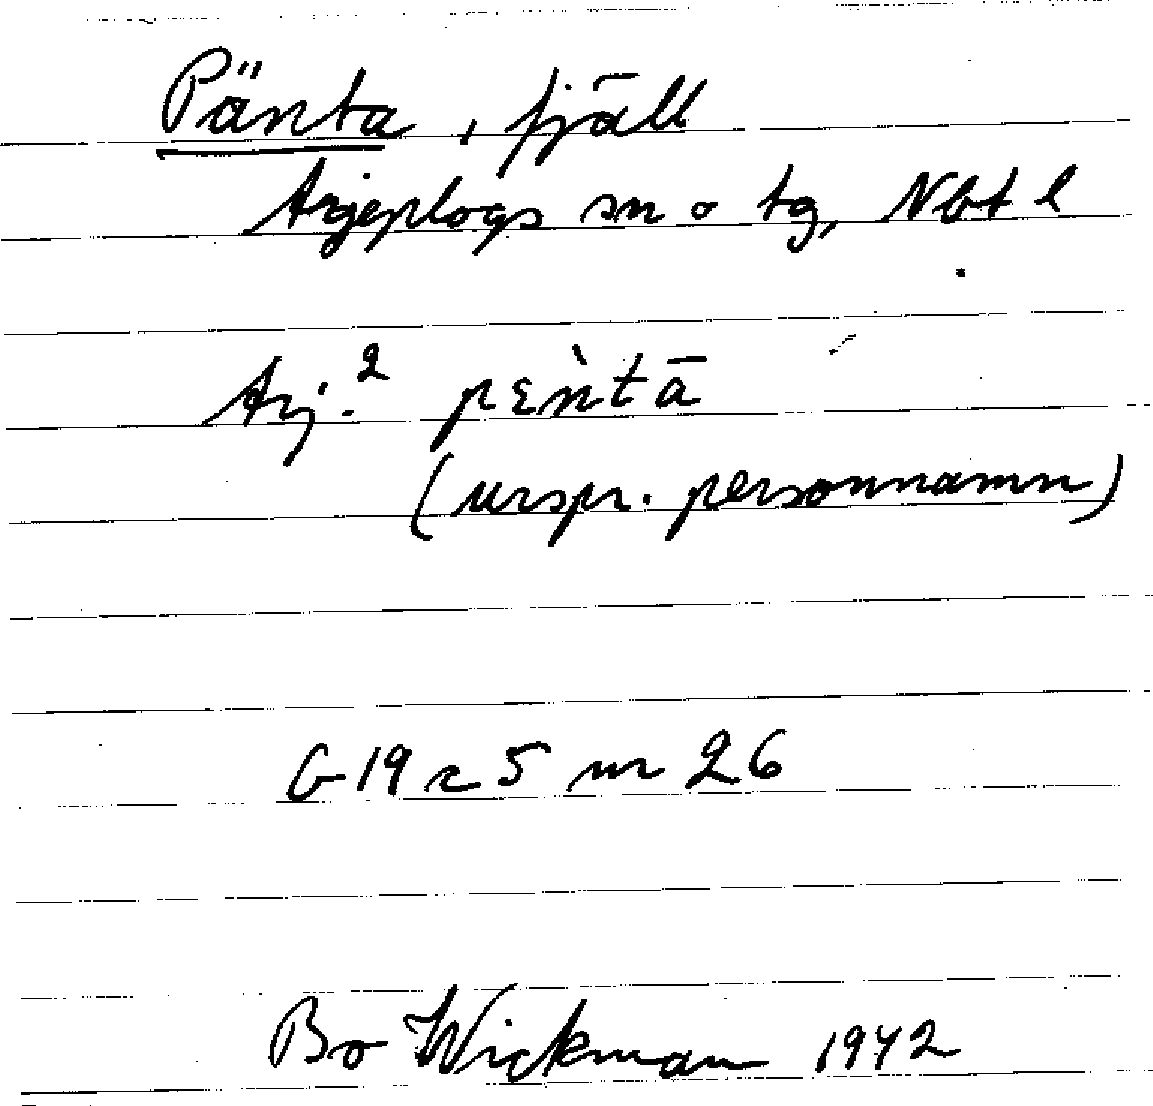 Pänta, fjäll
Arjeplogs sn o tg, Nbt l
Arj.² pɛǹtā
(urspr. personnamn)
G 19 c 5 nr 26
Bo Wickman 1942